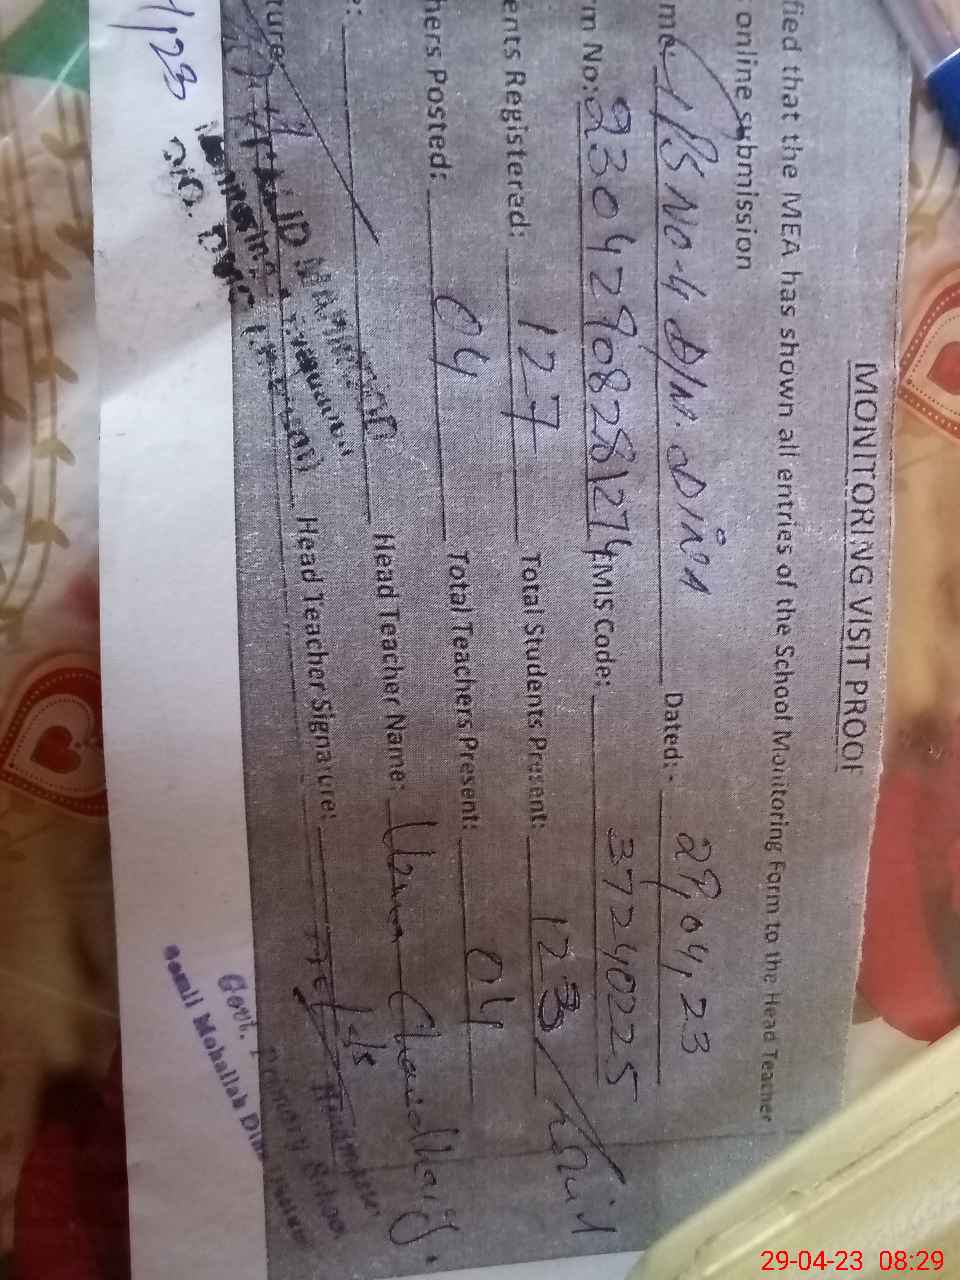 MONITORING VISIT PROOF
fied that the MEA has shown all entries of the School Monitoring Form to the Head Teacher
online submission
me: G/PS NO-4 D/N. DINA Dated:- 29,04,23
rm No: 23042908281274 EMIS Code: 37240225
ents Registered: 127 Total Students Present: 123
hers Posted: 04 Total Teachers Present: 04
e: Head Teacher Name: Uzma Chaudhary.
ture: Head Teacher Signature:
Monitoring & Evaluation
/123
Headmistress
Govt. Primary School
Mohallah Dina
29-04-23 08:29